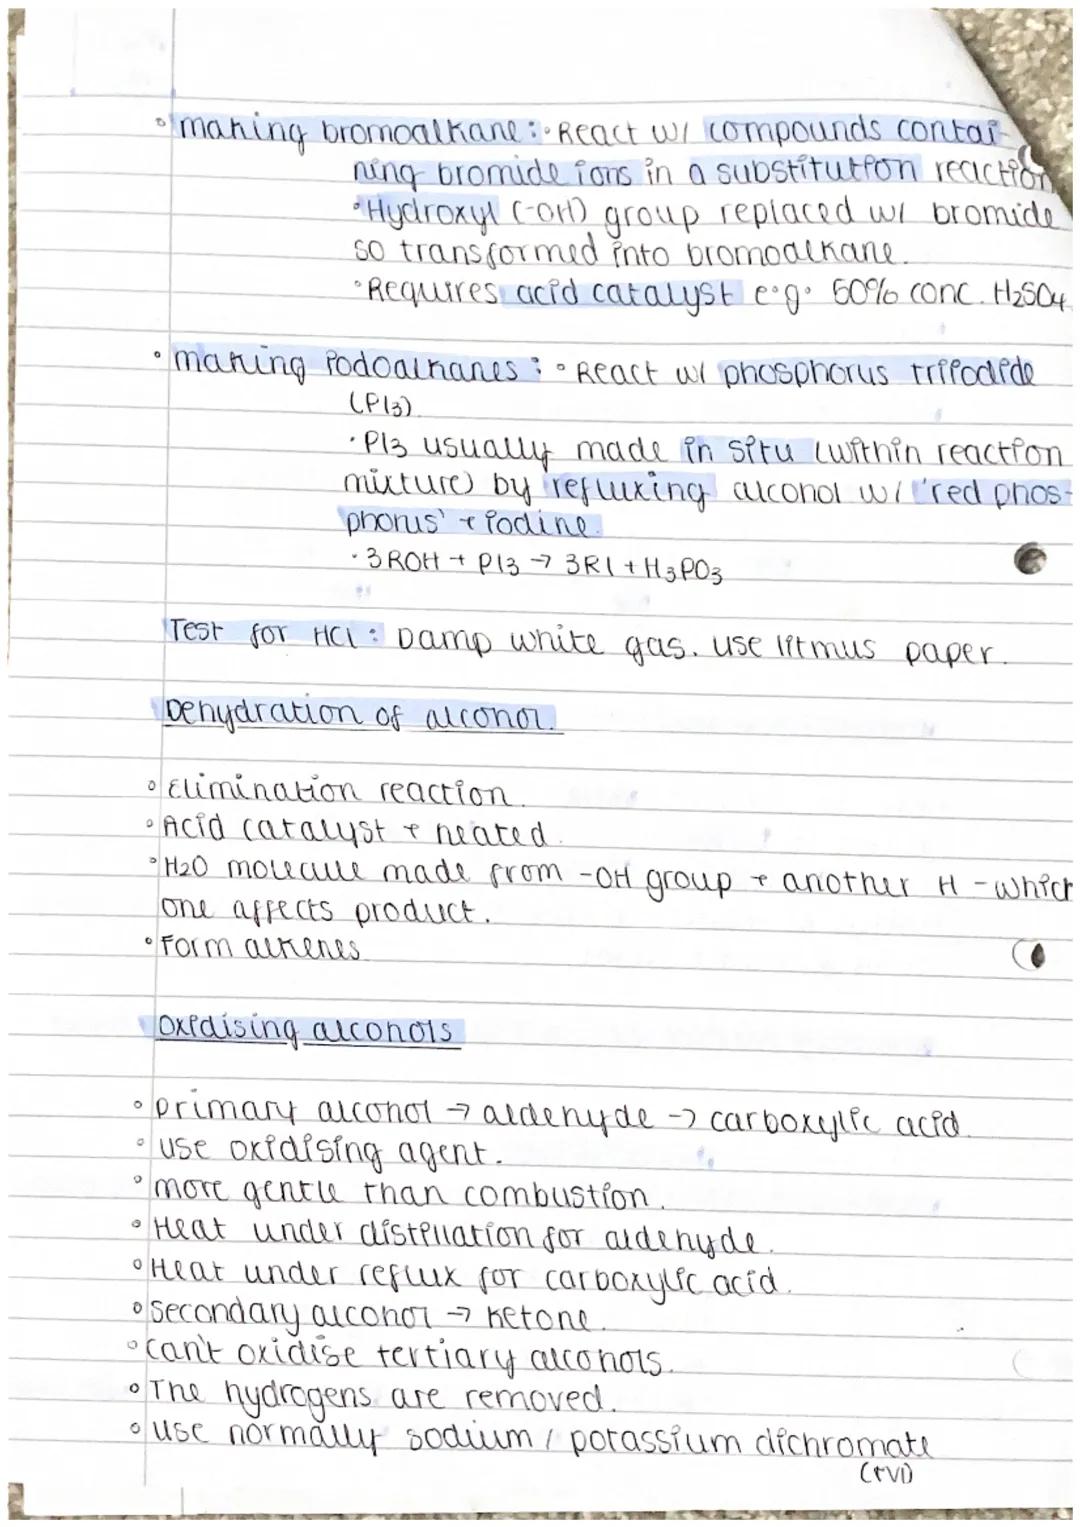 • making bromoalkane: • React w/ compounds contai-
ning bromide ions in a substitution reaction
• Hydroxyl (-OH) group replaced w/ bromide
so transformed into bromoalkane.
• Requires acid catalyst e.g. 50% conc. H₂SO₄
• making iodoalkanes: • React w/ phosphorus triiodide
(PI₃).
• PI₃ usually made in situ (within reaction
mixture) by refluxing alcohol w/ 'red phos-
phorus' + iodine.
• 3ROH + PI₃ → 3RI + H₃PO₃
Test for HCl: Damp white gas. Use litmus paper.
Dehydration of alcohol.
• Elimination reaction.
• Acid catalyst + heated.
• H₂O molecule made from -OH group + another H - which
one affects product.
• Form alkenes
Oxidising alcohols
• primary alcohol → aldehyde → carboxylic acid.
• use oxidising agent.
• more gentle than combustion.
• Heat under distillation for aldehyde.
• Heat under reflux for carboxylic acid.
• Secondary alcohol → ketone.
• can't oxidise tertiary alcohols.
• The hydrogens are removed.
• Use normally sodium / potassium dichromate
(+VI)